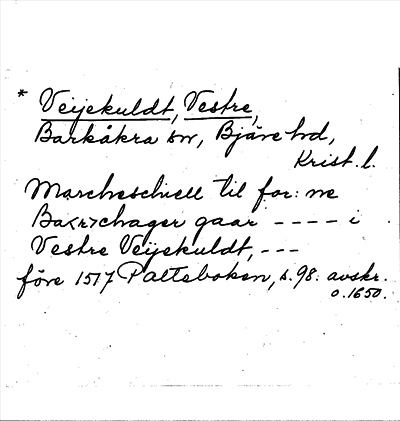 * Veijekuldt, Vestre,
Barkåkra sn, Bjäre hd,
Krist. l.
Marcheschiell til for: ne
Ba<r>chager gaar ---- i
Vestre Veijekuldt, ---
före 1517 Palteboken, s. 98. avskr.
o. 1650.